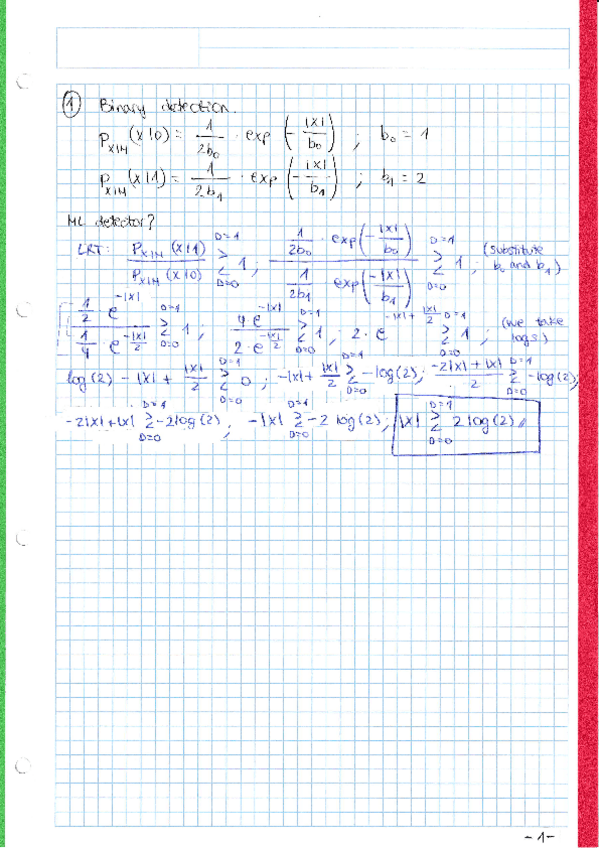 ① Binary detection.
P_{X|H}(x|0) = \frac{1}{2b_0} · exp(-\frac{|x|}{b_0}) ; b_0 = 1
P_{X|H}(x|1) = \frac{1}{2b_1} · exp(-\frac{|x|}{b_1}) ; b_1 = 2
ML detector?
LRT: \frac{P_{X|H}(x|1)}{P_{X|H}(x|0)} \overset{D=1}{\underset{D=0}{≷}} 1 ; \frac{\frac{1}{2b_0} · exp(-\frac{|x|}{b_0})}{\frac{1}{2b_1} exp(\frac{-|x|}{b_1})} \overset{D=1}{\underset{D=0}{≷}} 1 ; (substitute b_0 and b_1)
\frac{\frac{1}{2} · e^{-|x|}}{\frac{1}{4} · e^{-\frac{|x|}{2}}} \overset{D=1}{\underset{D=0}{≷}} 1 ; \frac{4·e^{-|x|}}{2·e^{-\frac{|x|}{2}}} \overset{D=1}{\underset{D=0}{≷}} 1 ; 2·e^{-|x|+\frac{|x|}{2}} \overset{D=1}{\underset{D=0}{≷}} 1 ; (we take logs.)
log(2) - |x| + \frac{|x|}{2} \overset{D=1}{\underset{D=0}{≷}} 0 ; -|x| + \frac{|x|}{2} \overset{D=1}{\underset{D=0}{≷}} -log(2) ; \frac{-2|x|+|x|}{2} \overset{D=1}{\underset{D=0}{≷}} -log(2) ;
-2|x|+|x| \overset{D=1}{\underset{D=0}{≷}} -2log(2) ; -|x| \overset{D=1}{\underset{D=0}{≷}} -2 log(2) ; |x| \overset{D=1}{\underset{D=0}{≷}} 2 log(2) //
-1-